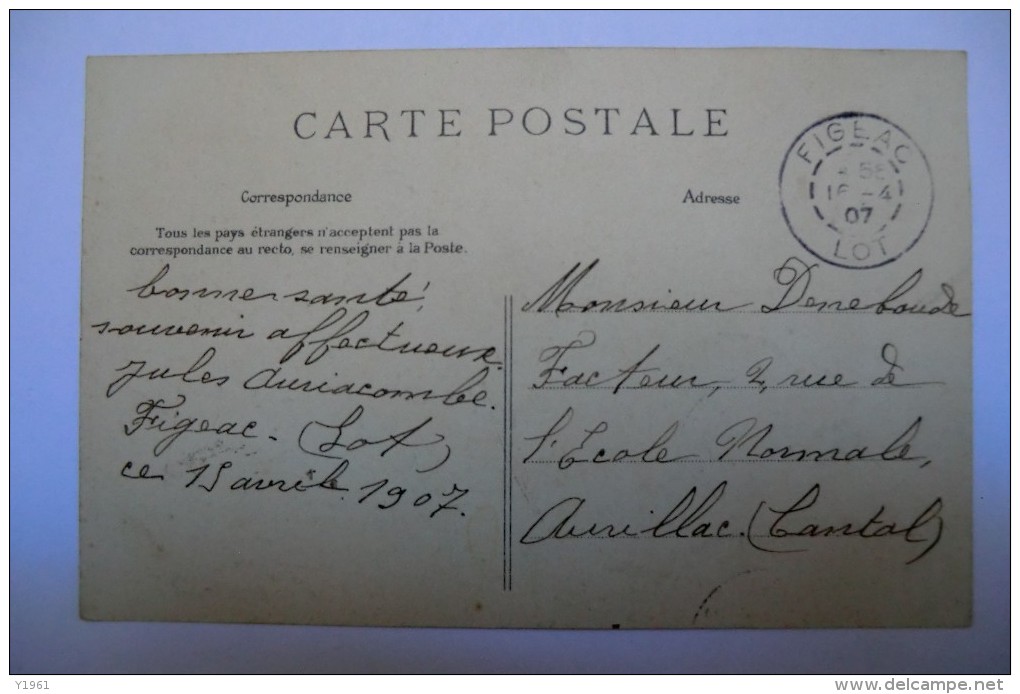 CARTE POSTALE
FIGEAC
58
16 -4
07
LOT
Correspondance
Adresse
Tous les pays étrangers n'acceptent pas la
correspondance au recto, se renseigner à la Poste.
bonne santé!
souvenir affectueux.
Jules Auriacombe.
Figeac. (Lot)
ce 15 avrile 1907.
Monsieur Deneboude
Facteur, 2, rue de
l'Ecole Normale,
Aurillac. (Cantal)
Y1961
www.delcampe.net